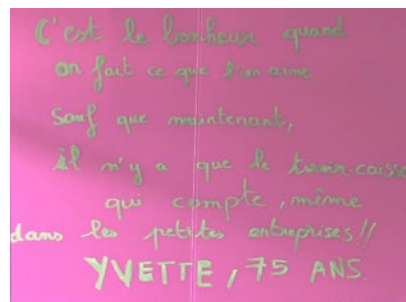 C'est le bonheur quand
on fait ce que l'on aime
Sauf que maintenant,
il n'y a que le tiroir-caisse
qui compte, même
dans les petites entreprises!!
YVETTE, 75 ANS.